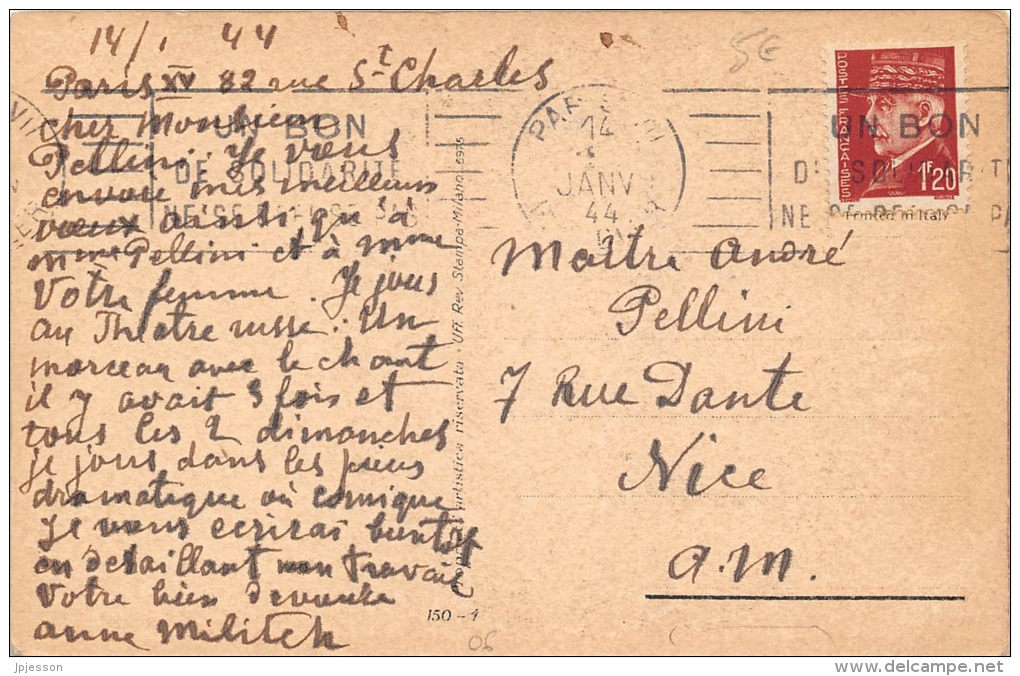 14/1 44
Paris XV 82 rue St Charles
cher Monsieur
Pellini. Je vous
envoie mes meilleurs
vœux ainsi qu'à
mme Pellini et à mme
Votre femme. Je jous
au Théatre russe. Un
morceau avec le chant
il y avait 3 fois et
tous les 2 dimanches
je jous dans les pieces
dramatique où comique
Je vous ecrirai bientot
en detaillant mon travail
Votre bien devouée
anne Militch
UN BON
DE SOLIDARITE
NE SE REFUSE PAS
14
JANV
44
5€
POSTES FRANÇAISES
1F20
UN BON
DE SOLIDARITE
NE SE REFUSE PA
Printed in Italy
Maître André
Pellini
7 Rue Dante
Nice
a.m.
artistica riservata - Uff. Rev. Stampa-Milano
150 - 1
06
jpjesson
www.delcampe.net